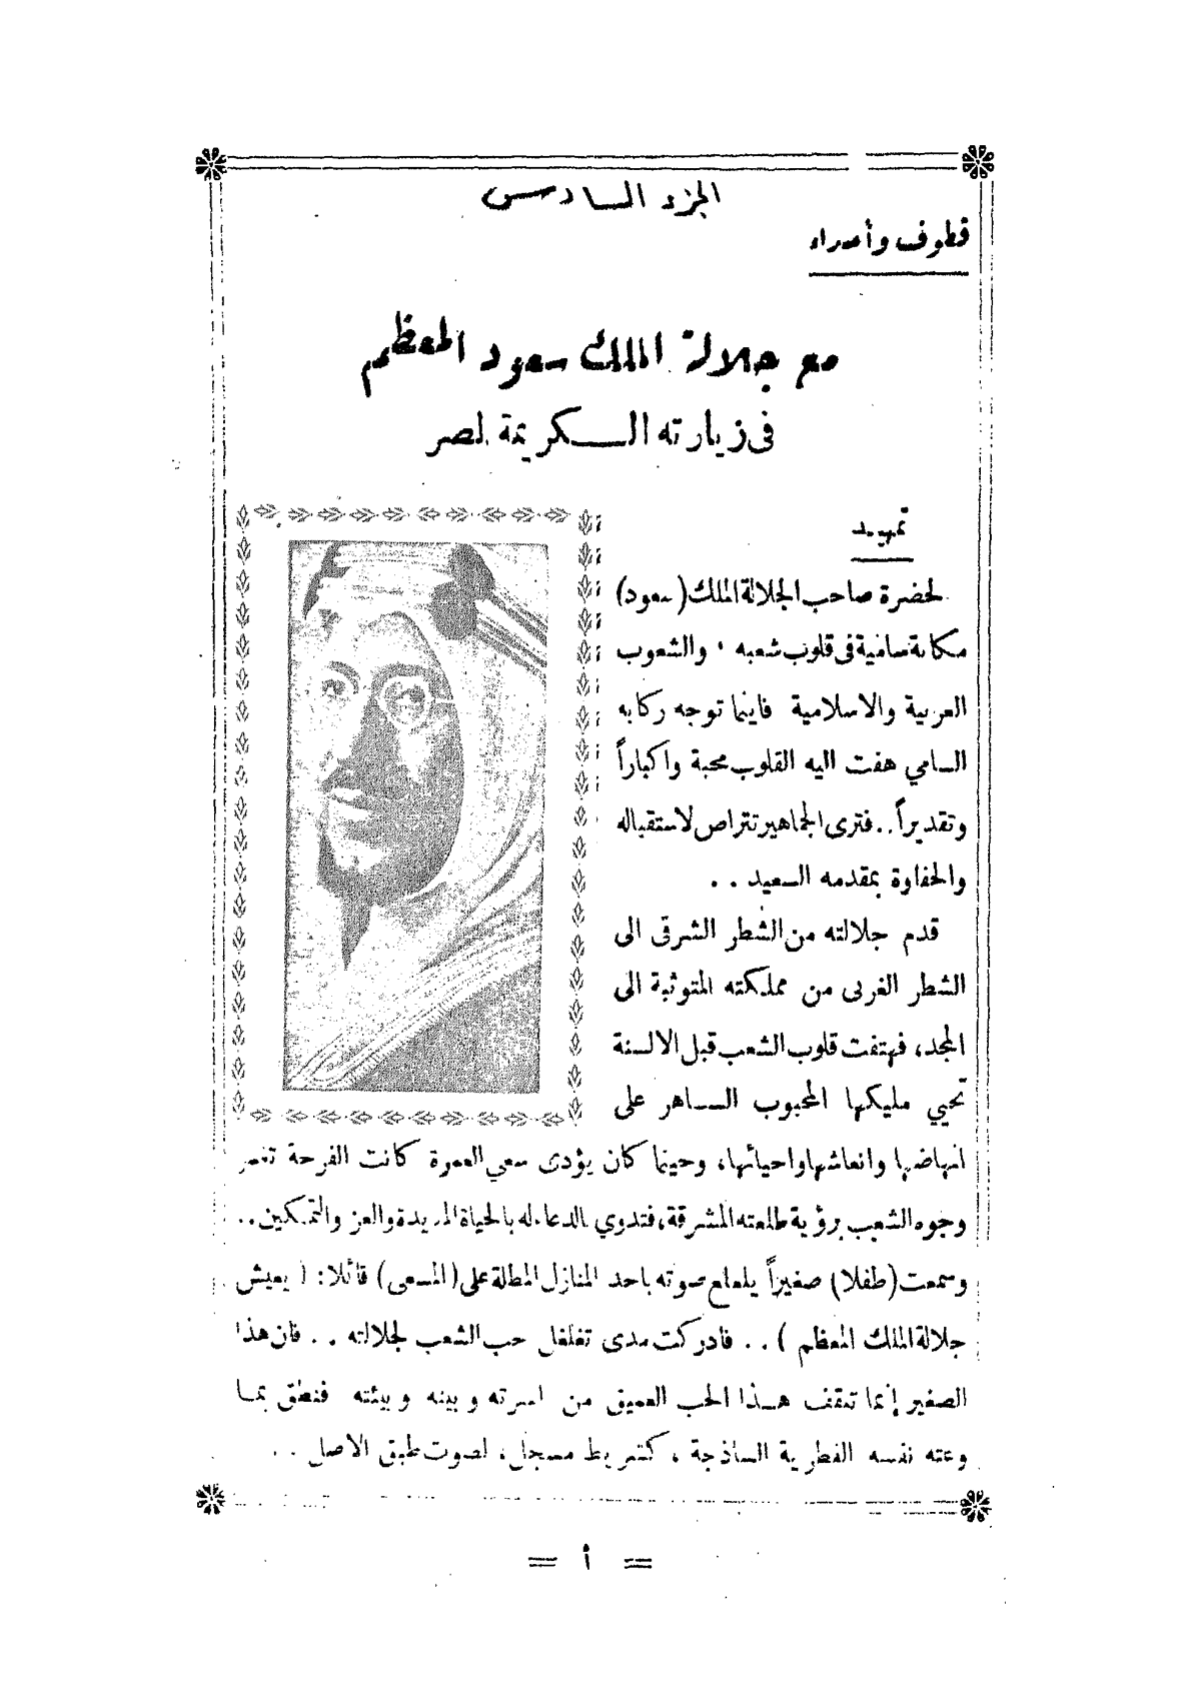 الجزء السادس
قطوف وأصداء
مع جلالة الملك سعود المعظم
في زيارته الكريمة لمصر
تمهيد
لحضرة صاحب الجلالة الملك (سعود)
مكانة سامية في قلوب شعبه ، والشعوب
العربية والاسلامية فاينما توجه ركابه
السامي هفت اليه القلوب محبة واكباراً
وتقديراً .. فترى الجماهير تتراص لاستقباله
والحفاوة بمقدمه السعيد . .
قدم جلالته من الشطر الشرقى الى
الشطر الغربى من مملكته المتوثبة الى
المجد، فهتفت قلوب الشعب قبل الالسنة
تحيي مليكها المحبوب الساهر على
انهاضها وانعاشها واحيائها، وحينما كان يؤدى سعي العمرة كانت الفرحة تغمر
وجوه الشعب برؤية طلعته المشرقة، فتدوي بالدعاء له بالحياة المديدة والعز والتمكين ..
وسمعت (طفلا) صغيراً يلعلع صوته باحد المنازل المطلة على (المسعى) قائلا: ( يعيش
جلالة الملك المعظم ) . . فادركت مدى تغلغل حب الشعب لجلالته . . فان هذا
الصغير إنما تثقف هذا الحب العميق من اسرته وبيته وبيئته فنطق بما
وعته نفسه الفطرية الساذجة ، كشريط مسجل، لصوت طبق الاصل . .
= أ =